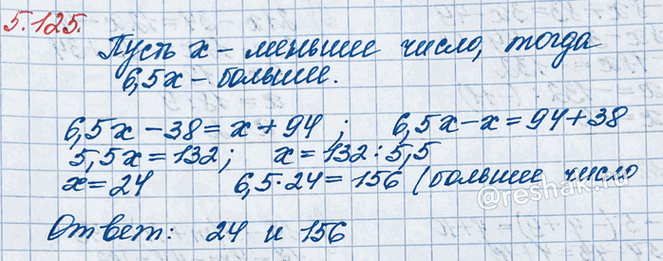 5.125.
Пусть x – меньшее число, тогда
6,5x – большее.
6,5x – 38 = x + 94 ; 6,5x – x = 94 + 38
5,5x = 132 ; x = 132 : 5,5
x = 24 6,5 · 24 = 156 (большее число
@reshak.ru
Ответ: 24 и 156